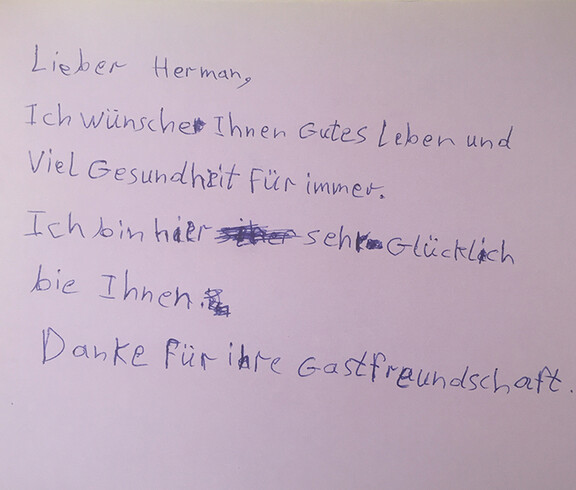 Lieber Herman,
Ich wünsche Ihnen Gutes Leben und
Viel Gesundheit Für immer.
Ich bin hier sehr Glücklich
bie Ihnen.
Danke Für ihre Gastfreundschaft.